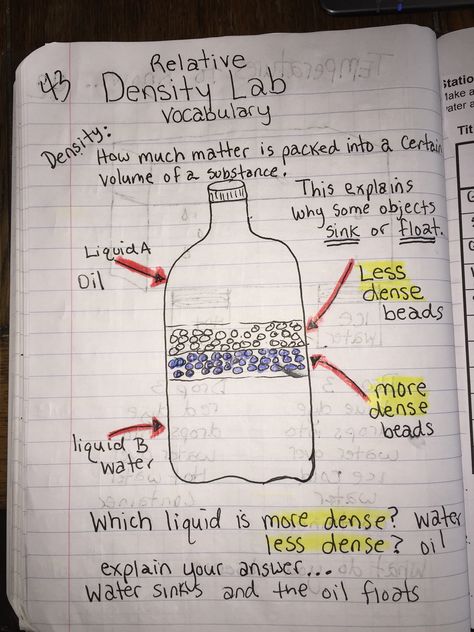 43
Relative
Density Lab
Vocabulary
Density:
How much matter is packed into a certain
volume of a substance.
This explains
why some objects
sink or float.
Liquid A
Oil
Less
dense
beads
more
dense
beads
liquid B
water
Which liquid is more dense? water
less dense? oil
explain your answer...
Water sinks and the oil floats